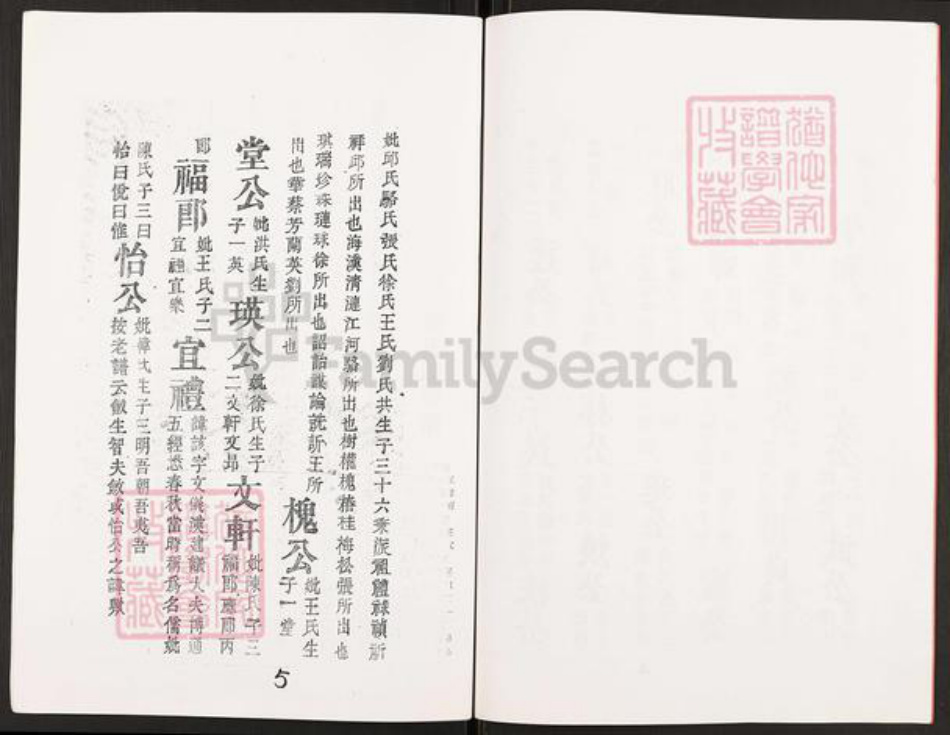 妣邱氏駱氏張氏徐氏王氏劉氏共生子三十六秉 祖禮祿禎祈
祥邱所出也海漢清漣江河駱所出也樹權槐椿桂梅松張所出也
琪瑞珍珠璉球徐所出也詔詒謀論 訢王所
出也華蔡芳蘭英劉所出也 槐公 妣王氏生
子一堂
堂公 妣洪氏生
子一英 瑛公 妣徐氏生子
二文軒文昂 文軒 妣陳氏子三
福郎應郎丙
郎 福郎 妣王氏子二
宜禮宜樂 宜禮 諱該字文 漢建議大夫博通
五經悉春秋當時稱爲名儒妣
陳氏子三曰
怡曰悅曰惟 怡公 妣韓氏生子三明吾朝吾夷吾
按老譜云叙生智夫叙或怡公之諱歟
5
FamilySearch
猶他家
譜學會
收藏
猶他家
譜學會
收藏